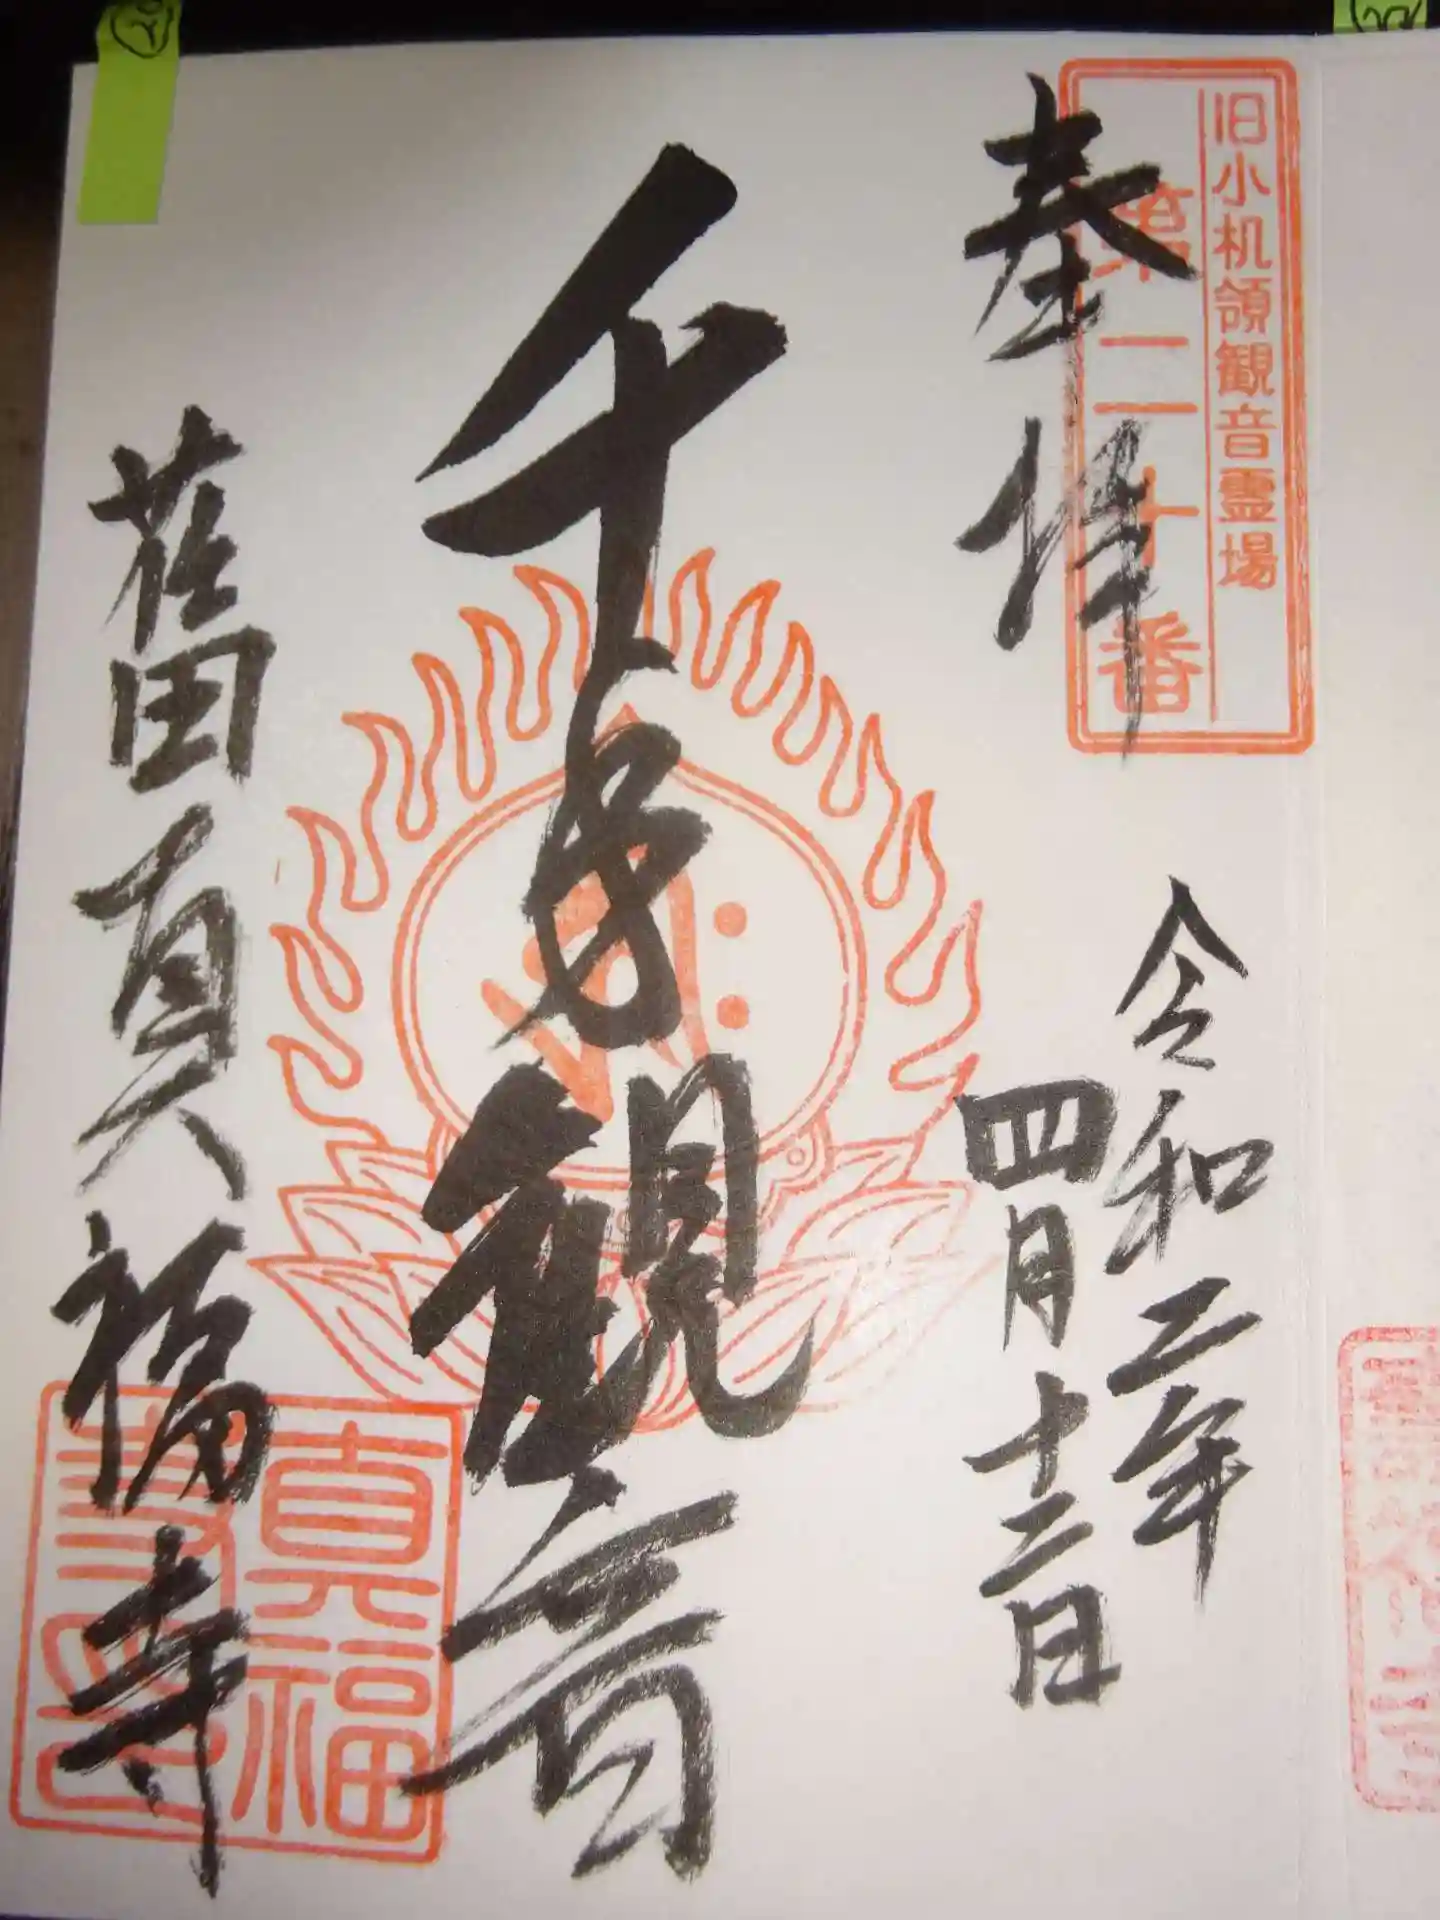 旧小机領観音霊場
第二十番
奉拝
令和二年
四月十二日
千手観音
荏田真福寺
真福
寺印